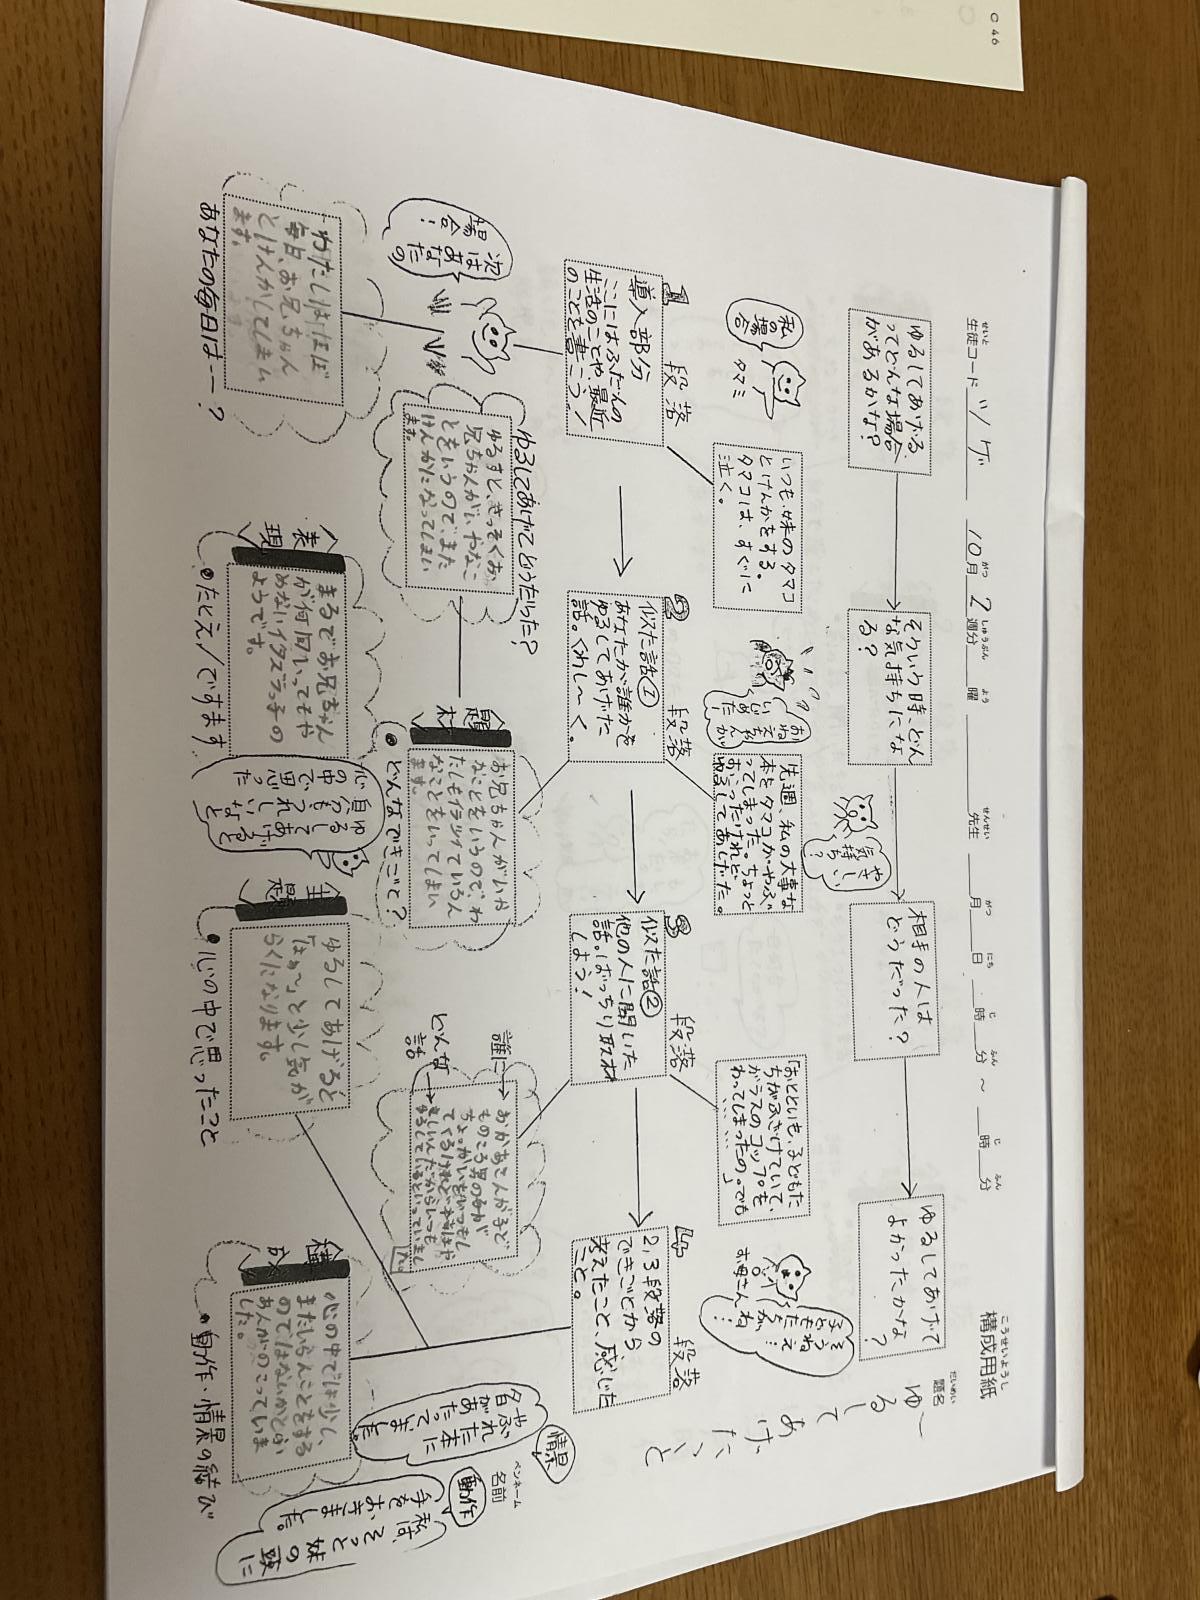 C46
構成用紙
こうせいようし
題名
だいめい
ゆるしてあげたこと
生徒コード ツゲ 10月2週分 曜 先生 月 日 時 分 ~ 時 分
せいと がつ しゅうぶん よう せんせい がつ にち じ ふん じ ふん
ペンネーム
名前
ゆるしてあげる
ってどんな場合
があるかな?
そういう時どん
な気持ちにな
る?
相手の人は
どうだった?
ゆるしてあげて
よかったかな
?
私の
場合
タマミ
いつも、妹のタマコ
とけんかをする。
タマコは、すぐに
泣く。
先週、私の大事な
本をタマコがやぶ
ってしまった。ちょっと
おこったけれど、
ゆるしてあげた。
やさしい
気持ち?
「おとといも、子どもた
ちがふざけていて、
ガラスのコップを
わってしまったの。でも
……………」
お母さんね
そうねえ…
子どもたちがね…
1段落
導入部分
ここにはふだんの
生活のことや、最近
のことを書こう!
2段落
似た話①
あなたが誰かを
ゆるしてあげた
話。くわし~く。
3段落
似た話②
他の人に聞いた
話。ばっちり取材
しよう!
4段落
2,3段落の
できごとから
考えたこと、感じた
こと。
次はあなたの
場合!
わたしはほぼ
毎日、お兄ちゃん
とけんかしてしまい
ます。
あなたの毎日は--?
ゆるしてあげてどうだった?
ゆるすと、さっそくお
兄ちゃんがいやなこ
とをいうので、また
けんかになってしまい
ます。
題材
お兄ちゃんがいや
なことをいうので、わ
たしもイラッけていろん
なことをいってしまい
ます。
●どんなできごと?
表現
まるでお兄ちゃん
が何回いってもや
めないイタズラっ子の
ようです。
●たとえ/ですます
ゆるしてあげると
自分もうれしいなと
心の中で思った
誰に→
どんな話→
主題
ゆるしてあげると
「はぁ~」と少し気が
らくになります。
●心の中で思ったこと
構成
心の中では少し、
またいらんことをする
のではないかとふ
あんがのこっていま
した。
●動作・情景の結び
情景
やぶれた本に
夕日があたって
いました。
動作
私は、そっと妹の頭に
手をおきました。